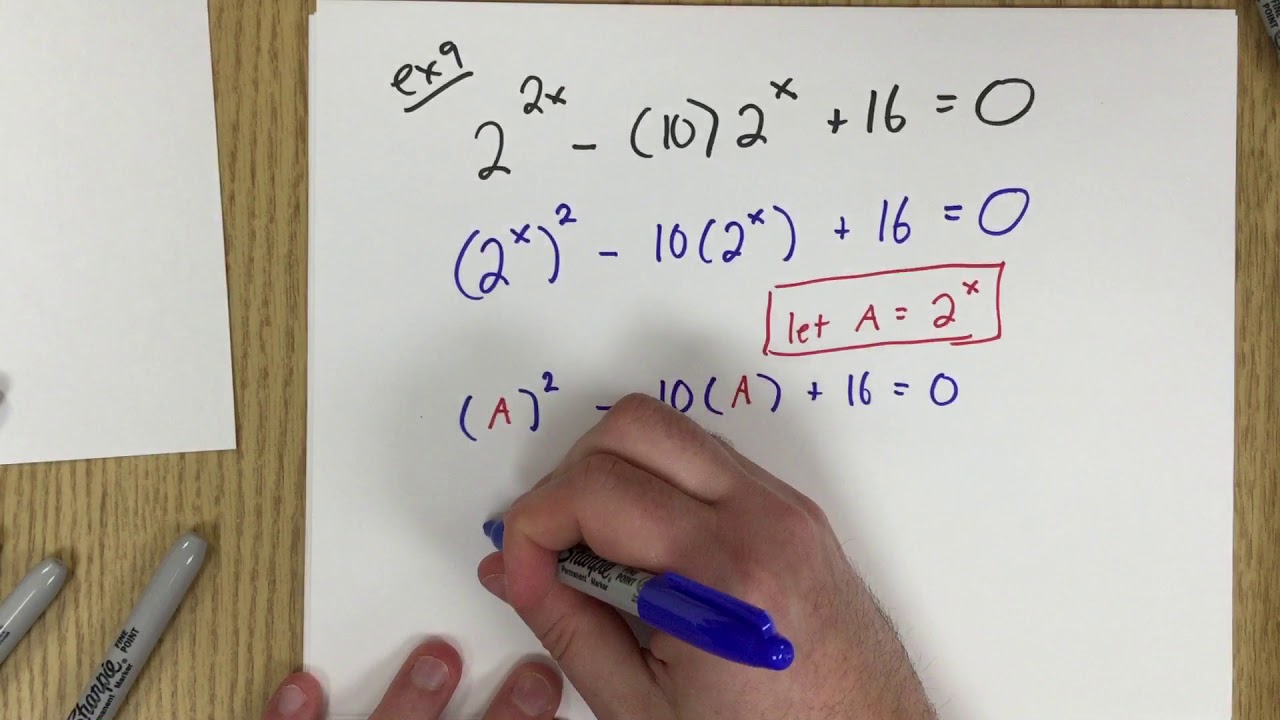 ex9
2^{2x} - (10) 2^x + 16 = 0
(2^x)^2 - 10(2^x) + 16 = 0
let A = 2^x
(A)^2 - 10(A) + 16 = 0
Sharpie
Permanent Marker
FINE POINT
Sharpie
FINE POINT